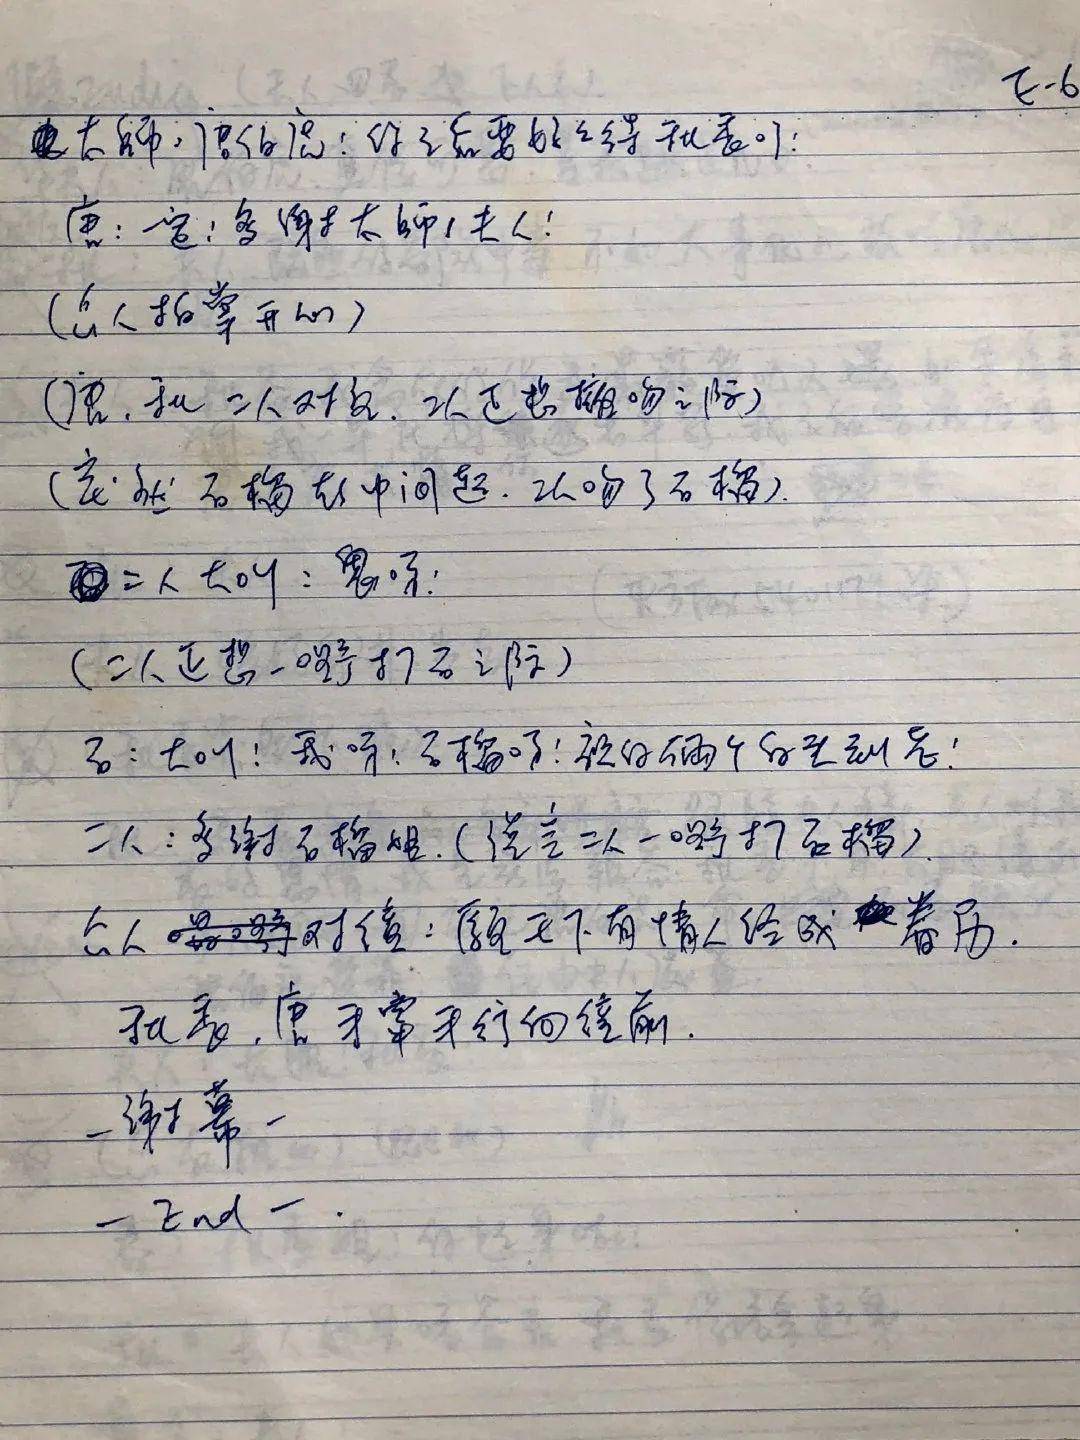 E-6
太師：唐伯虎：你之后要好之待秋香呀！
唐：一定！多謝太師，夫人！
(众人拍掌开心)
(唐.秋二人对望.二人正想拥吻之际)
(突然石榴在中间起.二人吻了石榴).
二人大叫：鬼呀！
(二人正想一嘢打石之际)
石：大叫！我呀！石榴呀！祝你倆个白头到老！
二人：多謝石榴姐.(说完二人一嘢打石榴).
众人对住：願天下有情人终成眷属.
秋香.唐手牵手行向台前.
-謝幕-
-End-.